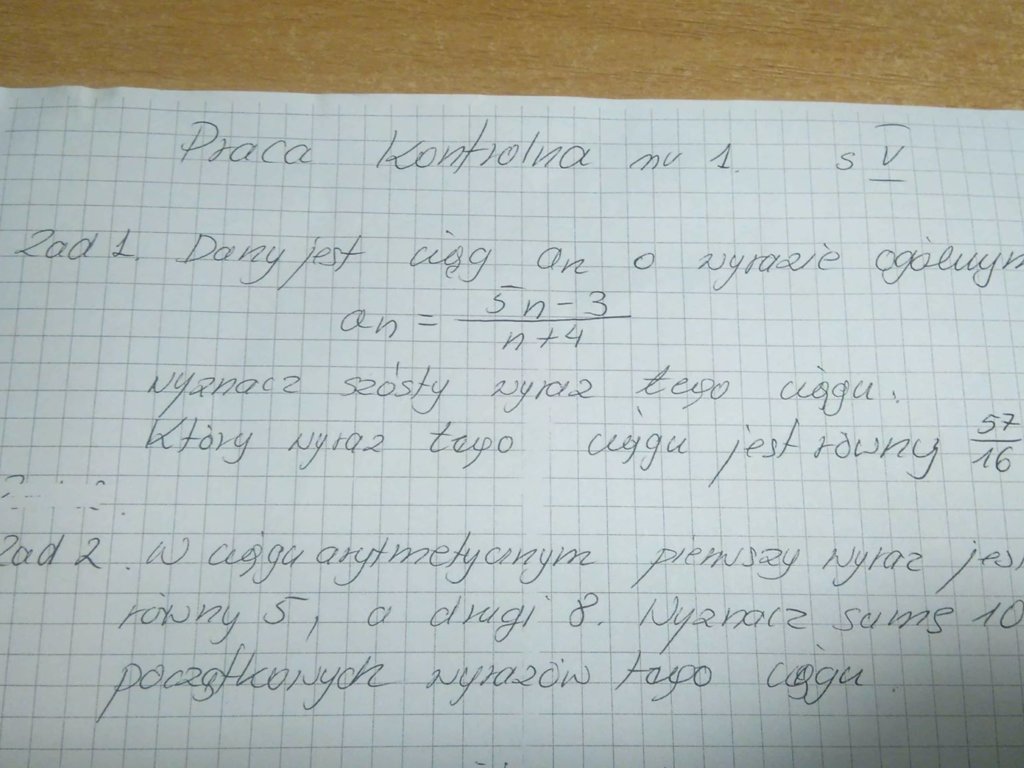 Praca kontrolna nr 1. s V
Zad 1. Dany jest ciąg an o wyrazie ogólnym
an = 5n-3 / n+4
wyznacz szósty wyraz tego ciągu.
Który wyraz tego ciągu jest równy 57/16
Zad 2. W ciągu arytmetycznym pierwszy wyraz jes
równy 5, a drugi 8. Wyznacz sumę 10
początkowych wyrazów tego ciągu.